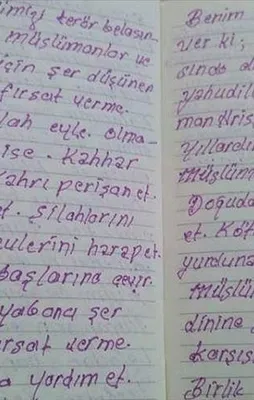 terör belasın-
müslümanlar ve
için şer düşünen
fırsat verme.
lah eyle. olma-
ise. Kahhar
Kahrı perişan et.
et. Silahlarını
harap et.
başlarına çevir.
yabana şer
fırsat verme.
yardım et.
Benim
ver ki,
yahudil
Yıllardı
müslüm
Doğuda
et. Köt
yurduna
müslü
dinine
karşıs
Birlik